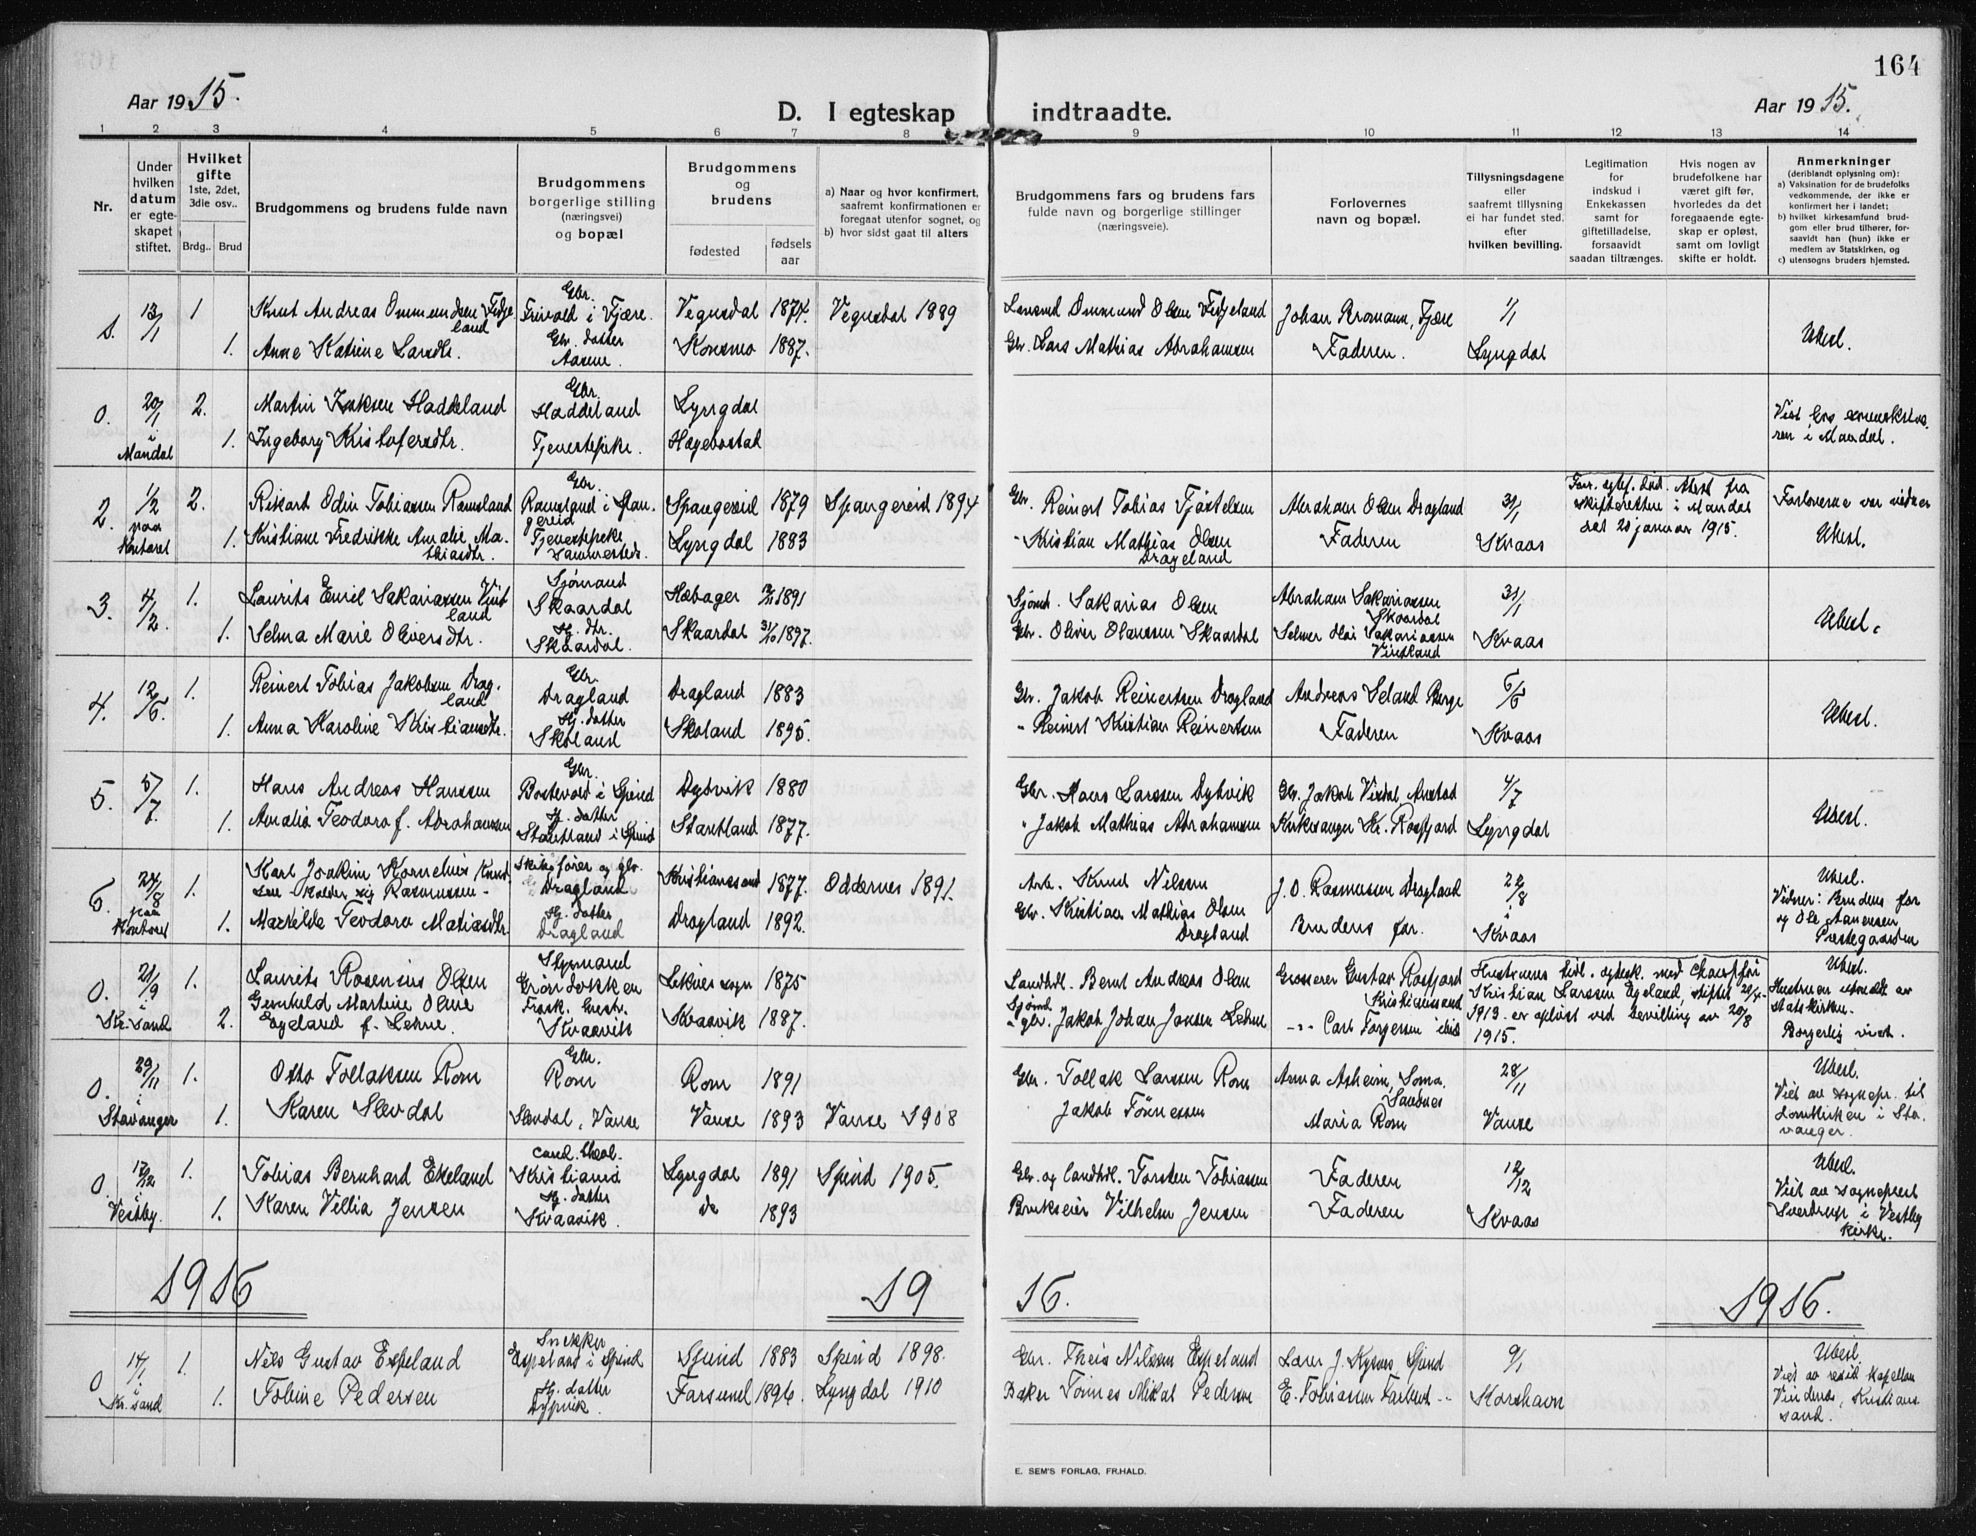 164
Aar 1915.
D. I egteskap indtraadte.
Aar 1915.
1 2 3 4 5 6 7 8 9 10 11 12 13 14
Nr.
Under hvilken datum er egteskapet stiftet.
Hvilket gifte
1ste, 2det, 3die osv..
Brdg.. Brud
Brudgommens og brudens fulde navn
Brudgommens borgerlige stilling (næringsvei) og bopæl
Brudgommens og brudens
fødested
fødsels aar
a) Naar og hvor konfirmert, saafremt konfirmationen er foregaat utenfor sognet, og
b) hvor sidst gaat til alters
Brudgommens fars og brudens fars fulde navn og borgerlige stillinger (næringsveie).
Forlovernes navn og bopæl.
Tillysningsdagene eller saafremt tillysning ei har fundet sted. efter hvilken bevilling.
Legitimation for indskud i Enkekassen samt for giftetilladelse, forsaavidt saadan tiltrænges.
Hvis nogen av brudefolkene har været gift før, hvorledes da det foregaaende egteskap er opløst, samt om lovlig skifte er holdt.
Anmerkninger
(deriblandt oplysning om):
a) Vaksination for de brudefolks vedkommende, der ikke er konfirmert her i landet;
b) hvilket kirkesamfund brudgom eller brud tilhører, forsaavidt han (hun) ikke er medlem av Statskirken, og
c) utensogns bruders hjemsted.
1. 13/1 1 Knut Andreas Ommundsen Fidjeland Gbr. Trivold i Fjære. Vegusdal 1874. Vegusdal 1889 Lensmd Ommund Olsen Fidjeland Johan Bromann, Fjære 1/1 Ubesl.
1. Anne Katrine Larsdtr. Gbr. datter Aasene. Konsmo 1887. Gbr. Lars Mathias Abrahamsen Faderen. Lyngdal
0. 20/1 i Mandal 2. Martin Isaksen Haddeland Gbr. Haddeland Lyngdal
1. Ingeborg Kristofersdtr. Tjenestepike. Hægebostad
Viet hos
i Mandal.
2. 1/2 paa Kontoret 2. Rikart Odin Tobiassen Ramsland Gbr. Ramsland i Spangereid Spangereid 1879 Spangereid 1894 Gbr. Reinert Tobias Fjøstelsen Abraham Olsen Dragland 31/1 Forr. egtef. død. Attest fra skifteretten i Mandal dat 20 januar 1915. Forloverne var vidner
1. Kristiane Fredrikke Amalie Mathiasdtr. Tjenestepike Lyngdal 1883 " Kristian Mathias Olsen Dragland Faderen Kvaas Ubesl.
3. 4/2 1. Laurits Emil Sakariassen Vintland Sjømand Skaardal Hæbager 1891 Sjømd. Sakarias Olsen Abraham Sakariassen Skaardal 31/1 Ubesl.
1. Selma Marie Oliversdtr. Hj. dtr. Skaardal. Skaardal 31/10 1897. Gbr. Oliver Olaussen Skaardal Selmer Sakariassen Vintland Kvaas
4. 12/6. 1. Reinert Tobias Jakobsen Dragland Gbr. Dragland Dragland 1883 Gbr. Jakob Reinertsen Dragland Andreas Seland Berge 6/6 Ubesl.
1. Anna Karoline Kristiansdtr. Hj. datter Skoland Skoland 1895. " Reinert Kristian Reinertsen Faderen Kvaas
5. 5/7. 1. Hans Andreas Hanssen Gbr. Bostevold i Spind Dybvik 1880 Gbr. Hans Larssen Dybvik Gbr. Jakob Vixdal Anstad 4/7 Ubesl.
1. Amalie Teodora f. Abrahamsen Hj. datter Stautland i Spind Stautland 1877. " Jakob Mathias Abrahamsen Kirkesanger Kr. Rosfjord Lyngdal
6. 24/8 paa Kontoret 1. Karl Joakim Kornelius Knudsen - kalder sig Rasmussen - Skibsfører og gbr. Dragland Kristianssand 1877. Oddernes 1891. Arb. Knud Nilssen J. O. Rasmussen Dragland 22/8 i Ubesl. Vidner: Brudens far og Ole Aanensen Prestegaarden
1. Matilde Teodora Matiasdtr. Hj. datter Dragland Dragland 1892. Gbr. Kristian Mathias Olsen Dragland Brudens far. Kvaas
0. 21/9 i Kr.sand 1. Laurits Rosenius Olsen Styrmand Grøndokken Leknes sogn 1875 Landhdl. Bernt Andreas Olsen Grosserer Gustav Rosfjord Kristianssand Hustruens tidl. egtesk. med Chauffør Kristian Larssen Egeland, stiftet 20/4 1913. er opløst ved bevilling av 20/8 1915. Ubesl. Hustruen utmeldt av Statskirken. Borgerlig viet.
2. Gunhild Martine Olene Egeland f. Lehne. Kvaavik Kvaavik 1887. Sjømd. & gbr. Jakob Johan Jansen Lehne Carl Torgersen ibid
0. 29/11 i Stavanger 1. Otto Tollaksen Rom Gbr. Rom Rom 1891 Gbr. Tollak Larssen Rom Anna Asheim, Soma, Sandnes 28/11 Ubesl. Viet av sognepr. til Domkirken i Stavanger.
1. Karen Slevdal Slevdal, Vanse Vanse 1893 Vanse 1908 Jakob Tønnessen Maria Rom Vanse
0. 17/12 i Vestby. 1. Tobias Bernhard Ekeland cand. theol. Kristiania Lyngdal 1891 Spind 1905. Gbr. og Landhdl. Torsten Tobiassen Faderen 12/12 Ubesl. Viet av sogneprest Sverdrup i Vestby kirke.
1. Karen Vellia Jensen Hj. datter Kvaavik. do 1893 Brukseier Vilhelm Jensen Faderen Kvaas
1916 1916. 1916.
0 14/1 i Kr.sand 1. Nils Gustav Espeland Snekker Espeland i Spind Spind 1883 Spind 1898. Gbr. Theis Nilssen Espeland Lærer J. Kysnes, Spind 9/1 Ubesl. Viet av resid. kapellan Vinderas, Kristianssand.
1. Tobine Pedersen Hj. datter Dypvik. Farsund 1896. Lyngdal 1910 Baker Tønnes Mikal Pedersen E. Tobiassen Farsund Korshavn
E. SEM'S FORLAG, FR.HALD.